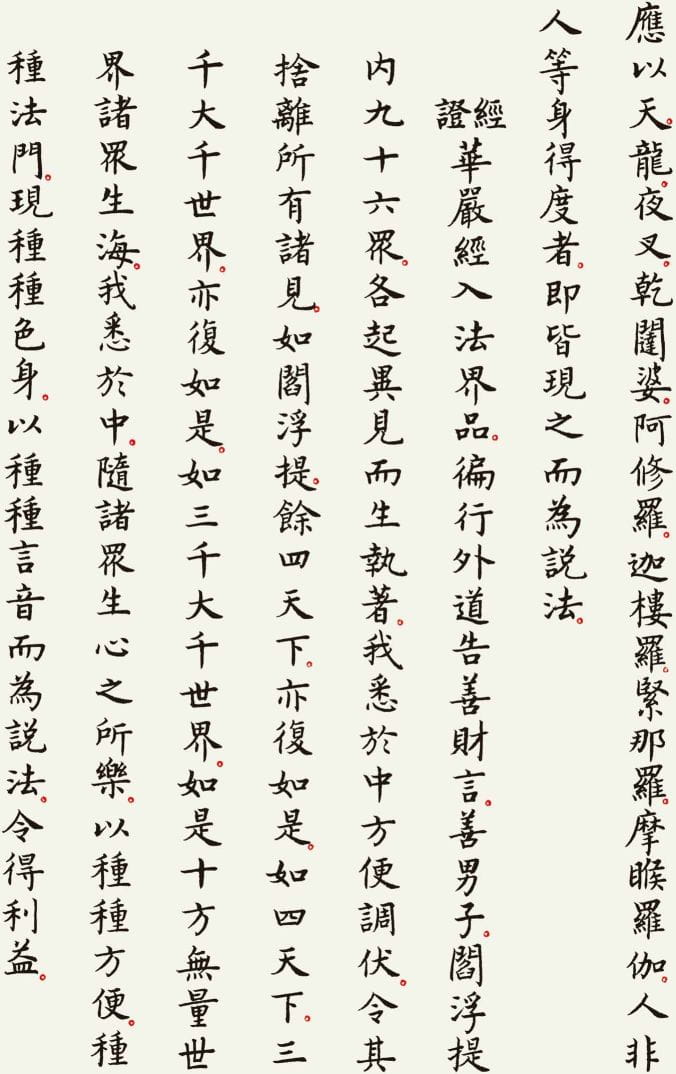 應以天。龍。夜叉。乾闥婆。阿修羅。迦樓羅。緊那羅。摩睺羅伽。人非
人等身得度者。即皆現之而為說法。
經證華嚴經入法界品。徧行外道告善財言。善男子。閻浮提
内九十六眾。各起異見而生執著。我悉於中方便調伏。令其
捨離所有諸見。如閻浮提。餘四天下。亦復如是。如四天下。三
千大千世界。亦復如是。如三千大千世界。如是十方無量世
界諸眾生海。我悉於中。隨諸眾生心之所樂。以種種方便。種
種法門。現種種色身。以種種言音而為說法。令得利益。